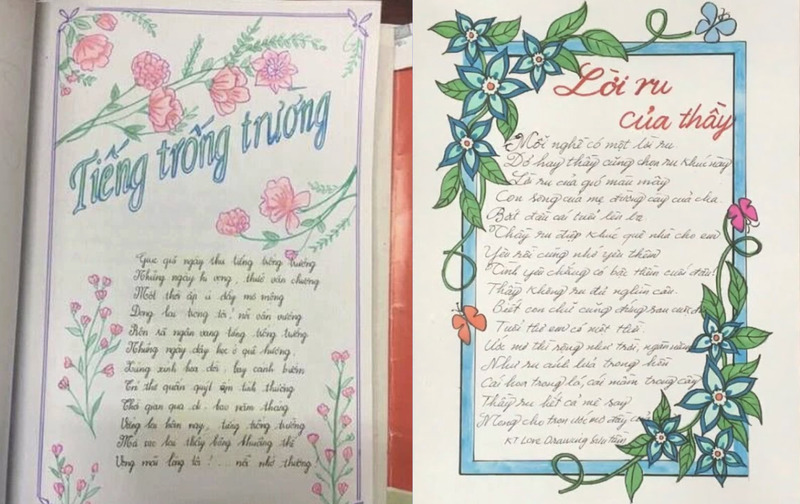 Tiếng trống trường
Qua quá ngày thu tiếng trống trường
Những ngày hi vọng, thức văn chương
Một thời ấp ủ đầy mơ mộng
Đọng lại trong tôi, nỗi vấn vương
Rộn rã ngân vang tiếng trống trường
Những ngày dạy học ở quê hương
Trùng xinh hoa đời, lay cánh bướm
Trí thơ quấn quýt ẹm tình thương
Thời gian qua đi bao năm tháng
Vẳng lại hôm nay, tiếng trống trường
Mà sao lại thấy bâng khuâng thế
Vọng mãi lòng tôi!... nỗi nhớ thương
Lời ru
của thầy
Mỗi nghề có một lời ru
Dở hay thầy cũng chọn ru khúc này
Lời ru của gió màu mây
Con sông của mẹ đường cày của cha
Bắt đầu cái tuổi lên ba
Thầy ru điệp khúc quê nhà cho em
Yêu rồi cũng nhớ yêu thêm
Tình yêu chẳng có bậc thềm cuối đâu!
Thầy không ru đủ nghìn câu
Biết con chữ cũng đứng sau cuộc đ
Tuổi thơ em có một thời
Ước mơ thì rộng như trời, ngàn năm
Như ru ánh lửa trong hồn
Cái hoa trong lá, cái mầm trong cây
Thầy ru hết cả mê say
Mong cho trọn ước mơ đầy của
KT Love Drawing Sưu tầm